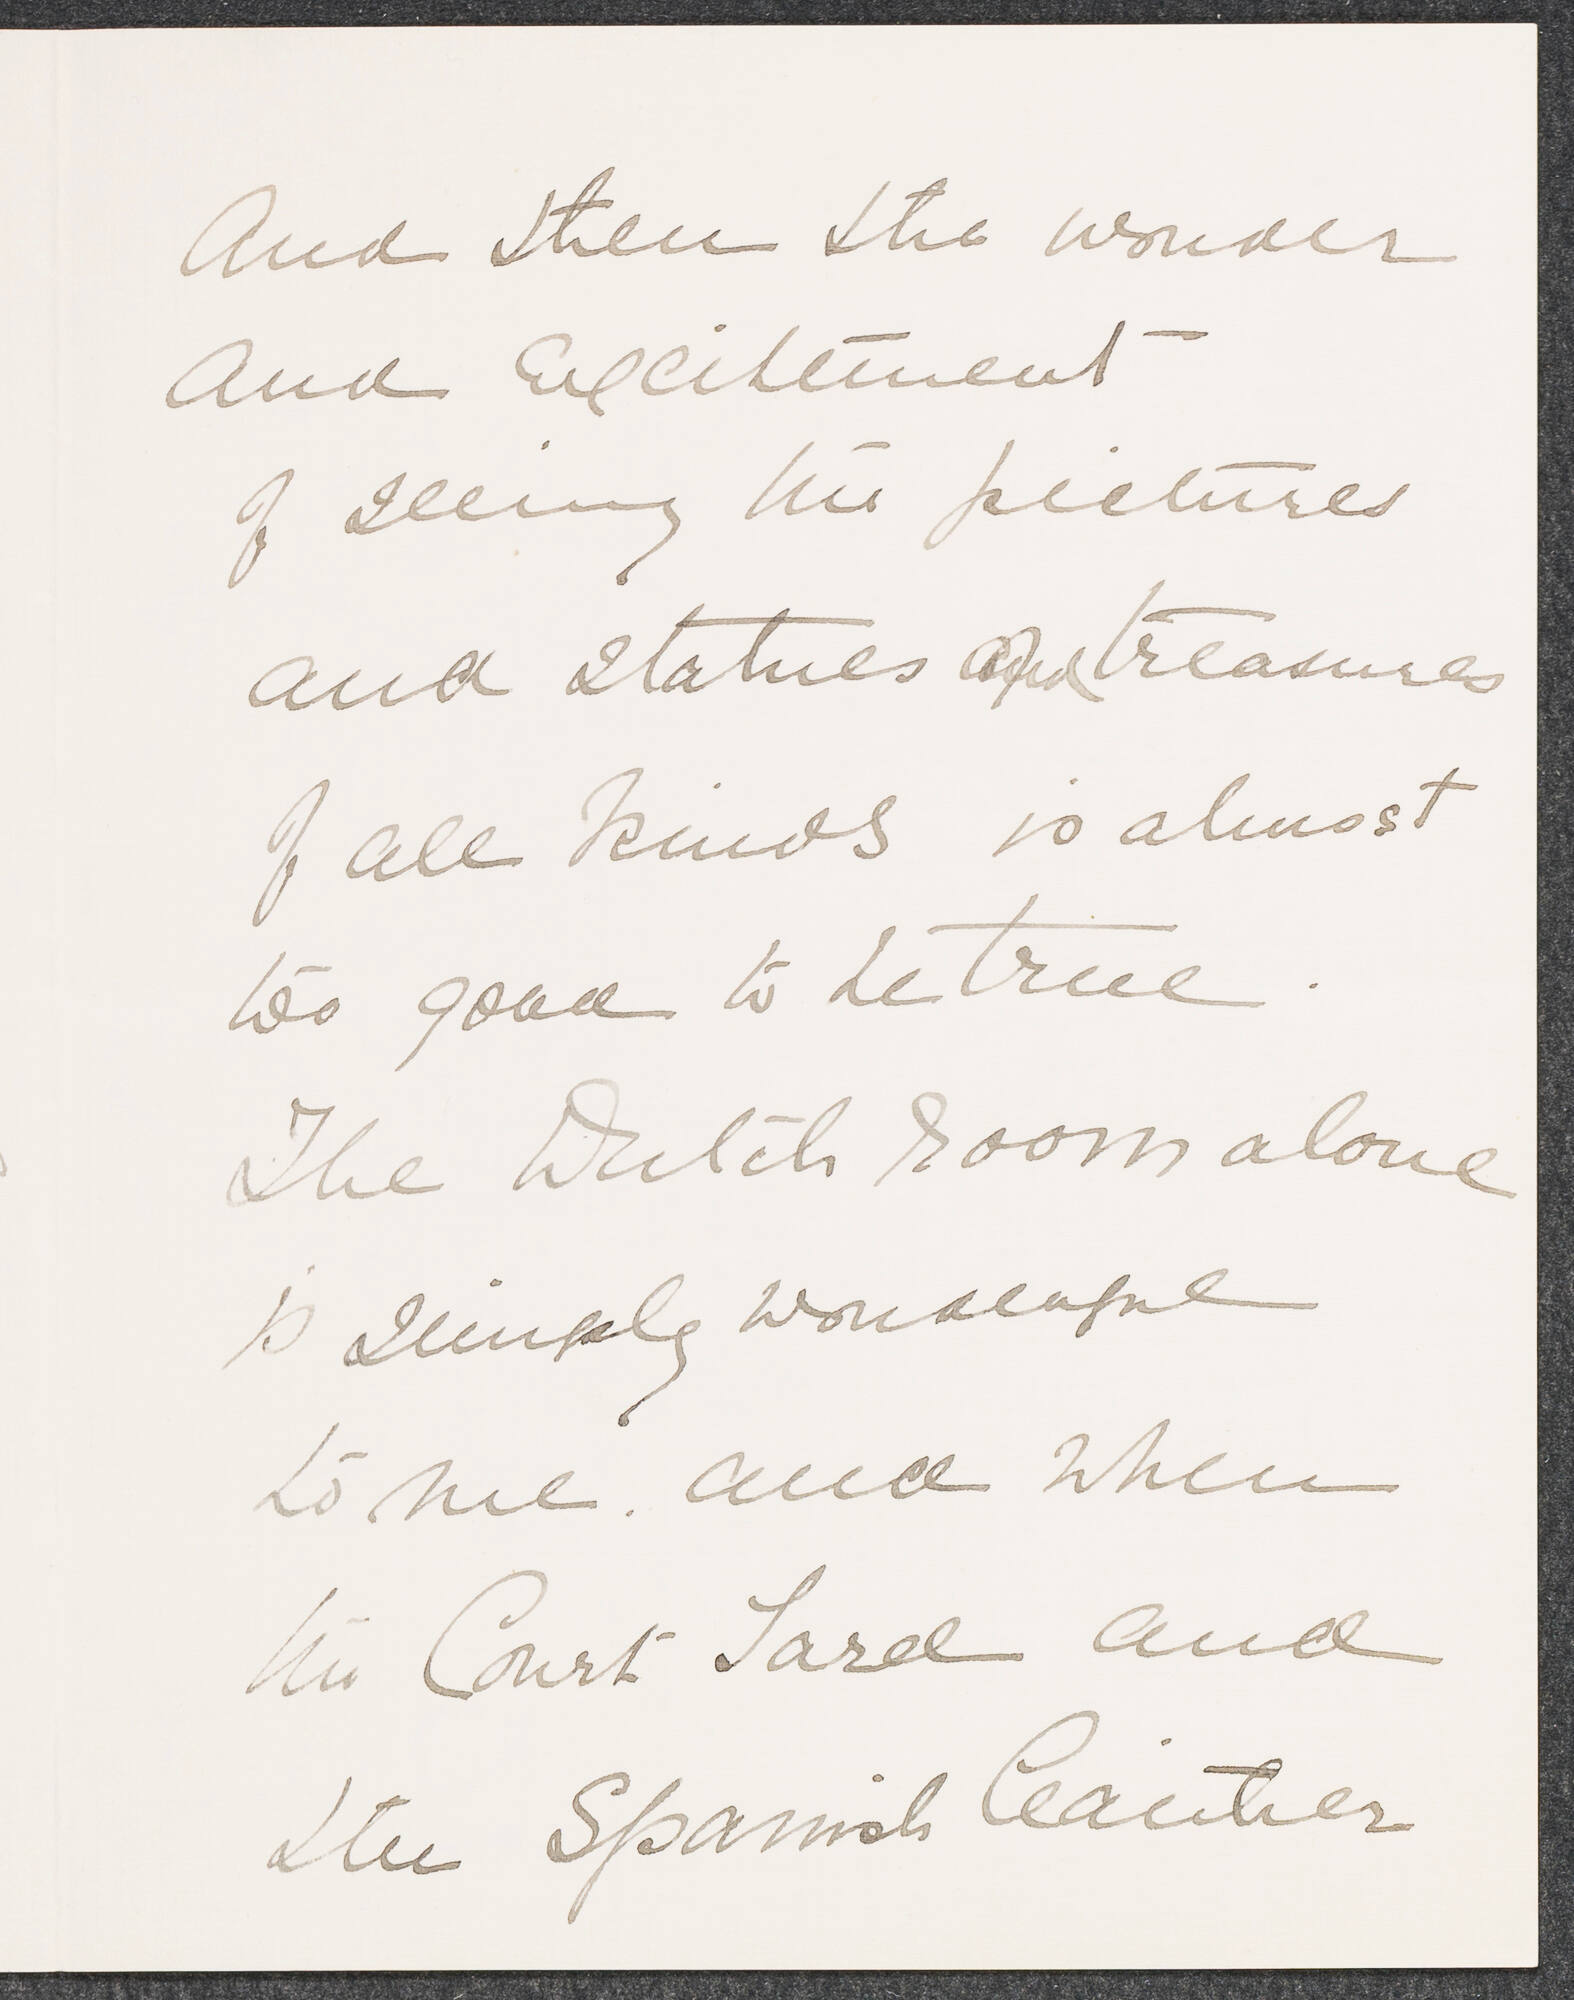 And then the wonder
And Excitement
of seeing the pictures
and statues and treasures
of all kinds is almost
too good to be true.
The Dutch Room alone
is simply wonderful
to me. and when
the Court Yard and
the Spanish Cloister